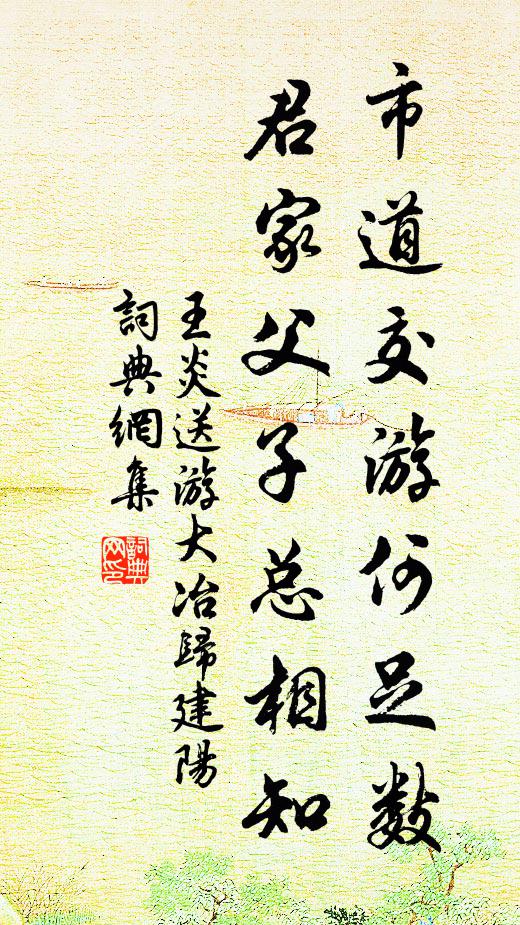 市道交游何足数
君家父子总相知
王炎送游大冶歸建陽
詞典網集
詞典
网印